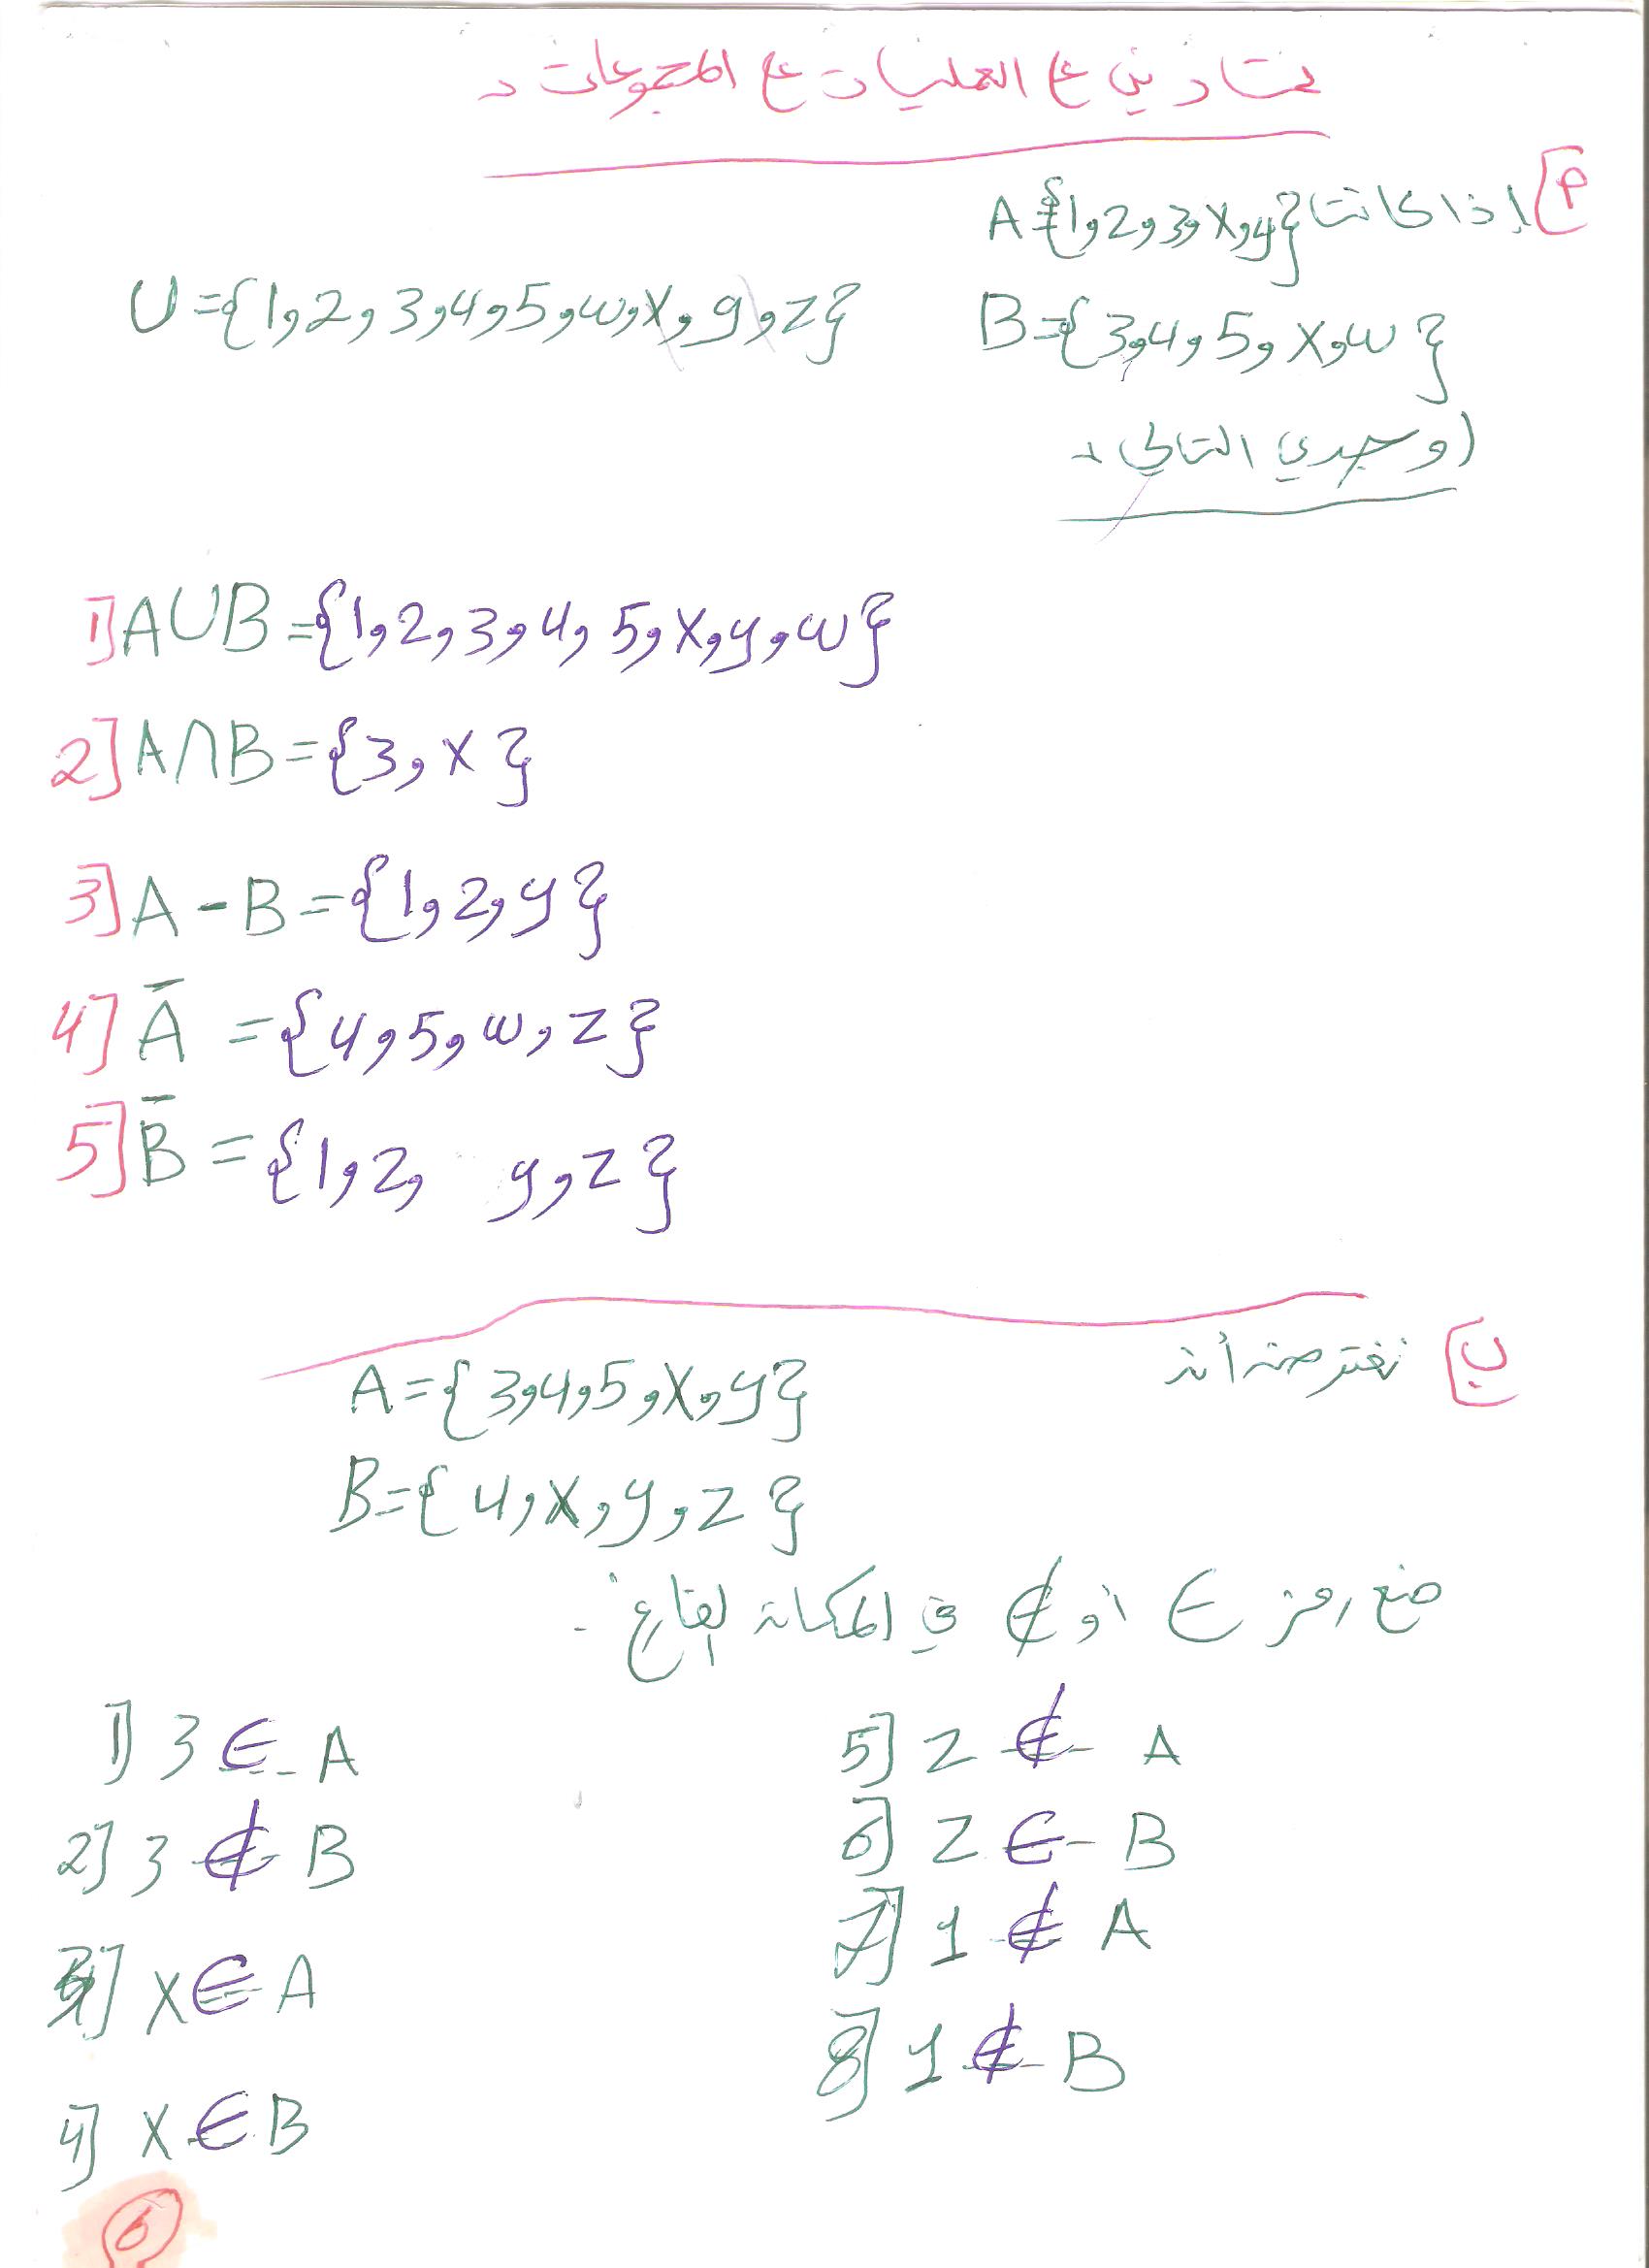 تمارين ع العمليات ع المجموعات :
أ] إذا كانت A={1,2,3,x,y}
B={3,4,5,x,w}
U={1,2,3,4,5,w,x,y,z}
اوجدي التالي :
1] A∪B={1,2,3,4,5,x,y,w}
2] A∩B={3,x}
3] A-B={1,2,y}
4] A̅ ={4,5,w,z}
5] B̅ ={1,2, y,z}
ب] نفترض أن
A={3,4,5,x,y}
B={4,x,y,z}
ضع رمز ∈ أو ∉ في المكان الفارغ :
1] 3 ∈ A
2] 3 ∉ B
3] x ∈ A
4] x ∈ B
5] z ∉ A
6] z ∈ B
7] 1 ∉ A
8] 1 ∉ B
6